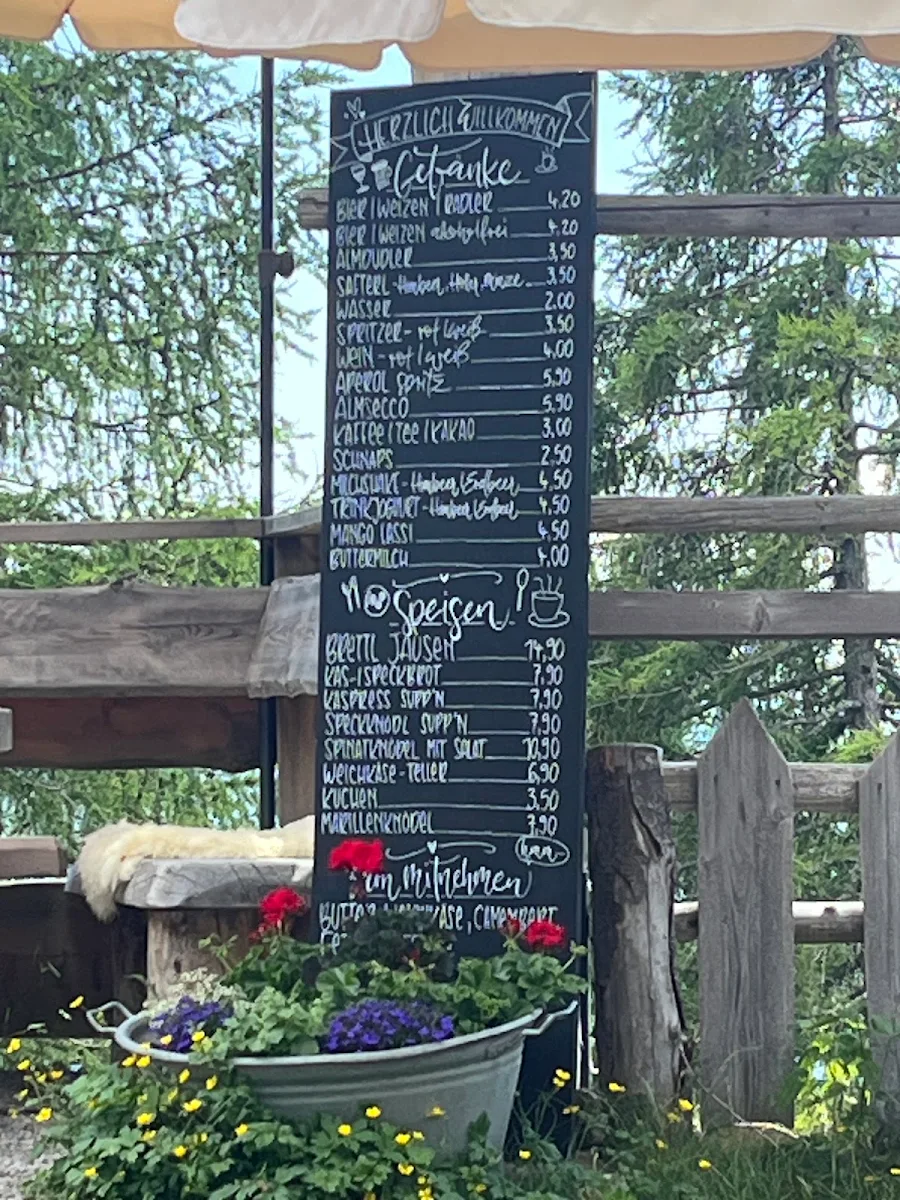 HERZLICH WILLKOMMEN
Getränke
BIER / WEIZEN / RADLER 4,20
BIER / WEIZEN alkoholfrei 4,20
ALMDUDLER 3,50
SAFTERL - Himbeer, Holu, Minze 3,50
WASSER 2,00
SPRITZER - rot / weiß 3,50
WEIN - rot / weiß 4,00
APEROL Spritz 5,90
ALMSECCO 5,90
KAFFEE / TEE / KAKAO 3,00
SCHNAPS 2,50
MILCHSHAKE - Himbeer / Erdbeer 4,50
TRINKJOGHURT - Himbeer / Erdbeer 4,50
MANGO LASSI 4,50
BUTTERMILCH 4,00
Speisen
BRETTL JAUSEN 14,90
KAS- / SPECKBROT 7,90
KASPRESS SUPP'N 7,90
SPECKKNÖDL SUPP'N 7,90
SPINATKNÖDEL MIT SALAT 10,90
WEICHKÄSE - TELLER 6,90
KUCHEN 3,50
MARILLENKNÖDEL 7,90
mitnehmen
BUTTER, CAMEMBERT